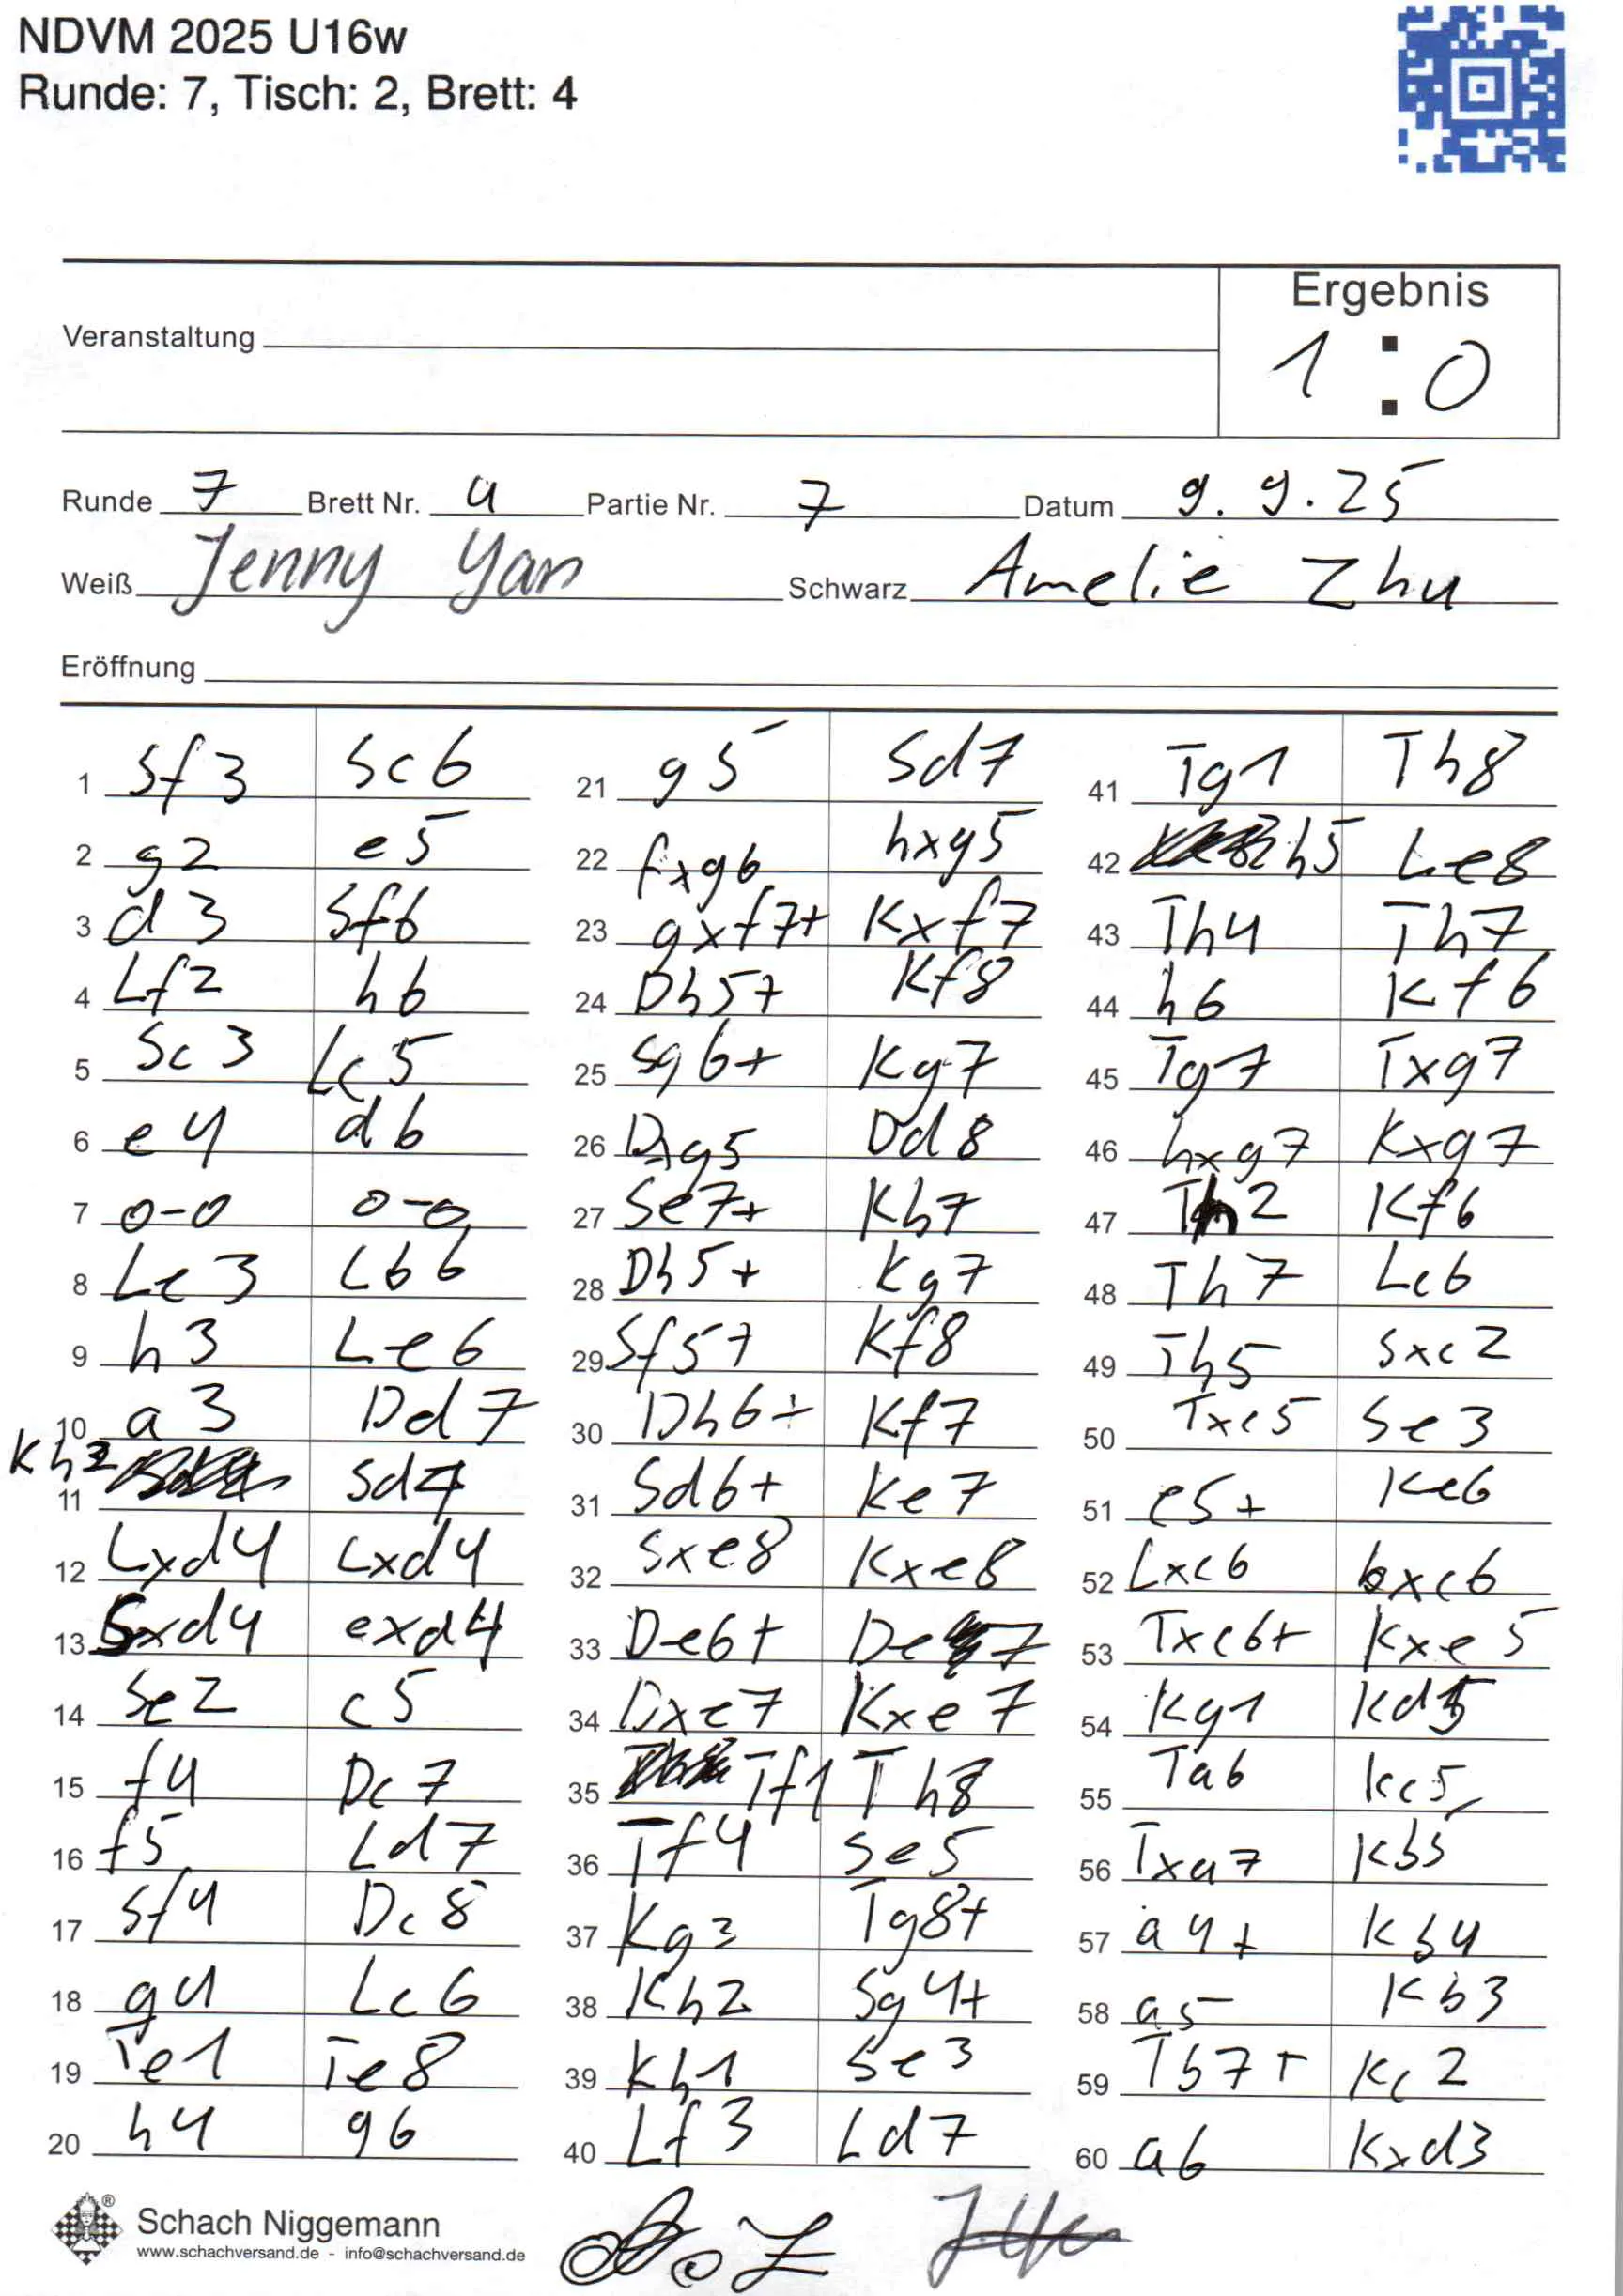 NDVM 2025 U16w
Runde: 7, Tisch: 2, Brett: 4
Ergebnis
Veranstaltung
1 : 0
Runde 7 Brett Nr. 4 Partie Nr. 7 Datum 9.9.25
Weiß Jenny Yan Schwarz Amelie Zhu
Eröffnung
1 Sf3 Sc6
2 g2 e5
3 d3 Sf6
4 Lf2 h6
5 Sc3 Lc5
6 e4 d6
7 0-0 0-0
8 Le3 Lb6
9 h3 Le6
10 a3 Dd7
11 Kh2 Sd4
12 Lxd4 Lxd4
13 Sxd4 exd4
14 Se2 c5
15 f4 Dc7
16 f5 Ld7
17 Sf4 Dc8
18 g4 Lc6
19 Te1 Te8
20 h4 g6
21 g5 Sd7
22 fxg6 hxg5
23 gxf7+ Kxf7
24 Dh5+ Kf8
25 Sg6+ Kg7
26 Dxg5 Dd8
27 Se7+ Kh7
28 Dh5+ Kg7
29 Sf5+ Kf8
30 Dh6+ Kf7
31 Sd6+ Ke7
32 Sxe8 Kxe8
33 De6+ De7
34 Dxe7 Kxe7
35 Tf1 Th8
36 Tf4 Se5
37 Kg3 Tg8+
38 Kh2 Sg4+
39 Kh1 Se3
40 Lf3 Ld7
41 Tg1 Th8
42 h5 Le8
43 Th4 Th7
44 h6 Kf6
45 Tg7 Txg7
46 hxg7 Kxg7
47 Th2 Kf6
48 Th7 Lc6
49 Th5 Sxc2
50 Txc5 Se3
51 e5+ Ke6
52 Lxc6 bxc6
53 Txc6+ Kxe5
54 Kg1 Kd5
55 Ta6 Kc5
56 Txa7 Kb5
57 a4+ Kb4
58 a5 Kb3
59 Tb7+ Kc2
60 a6 Kxd3
Schach Niggemann
www.schachversand.de - info@schachversand.de